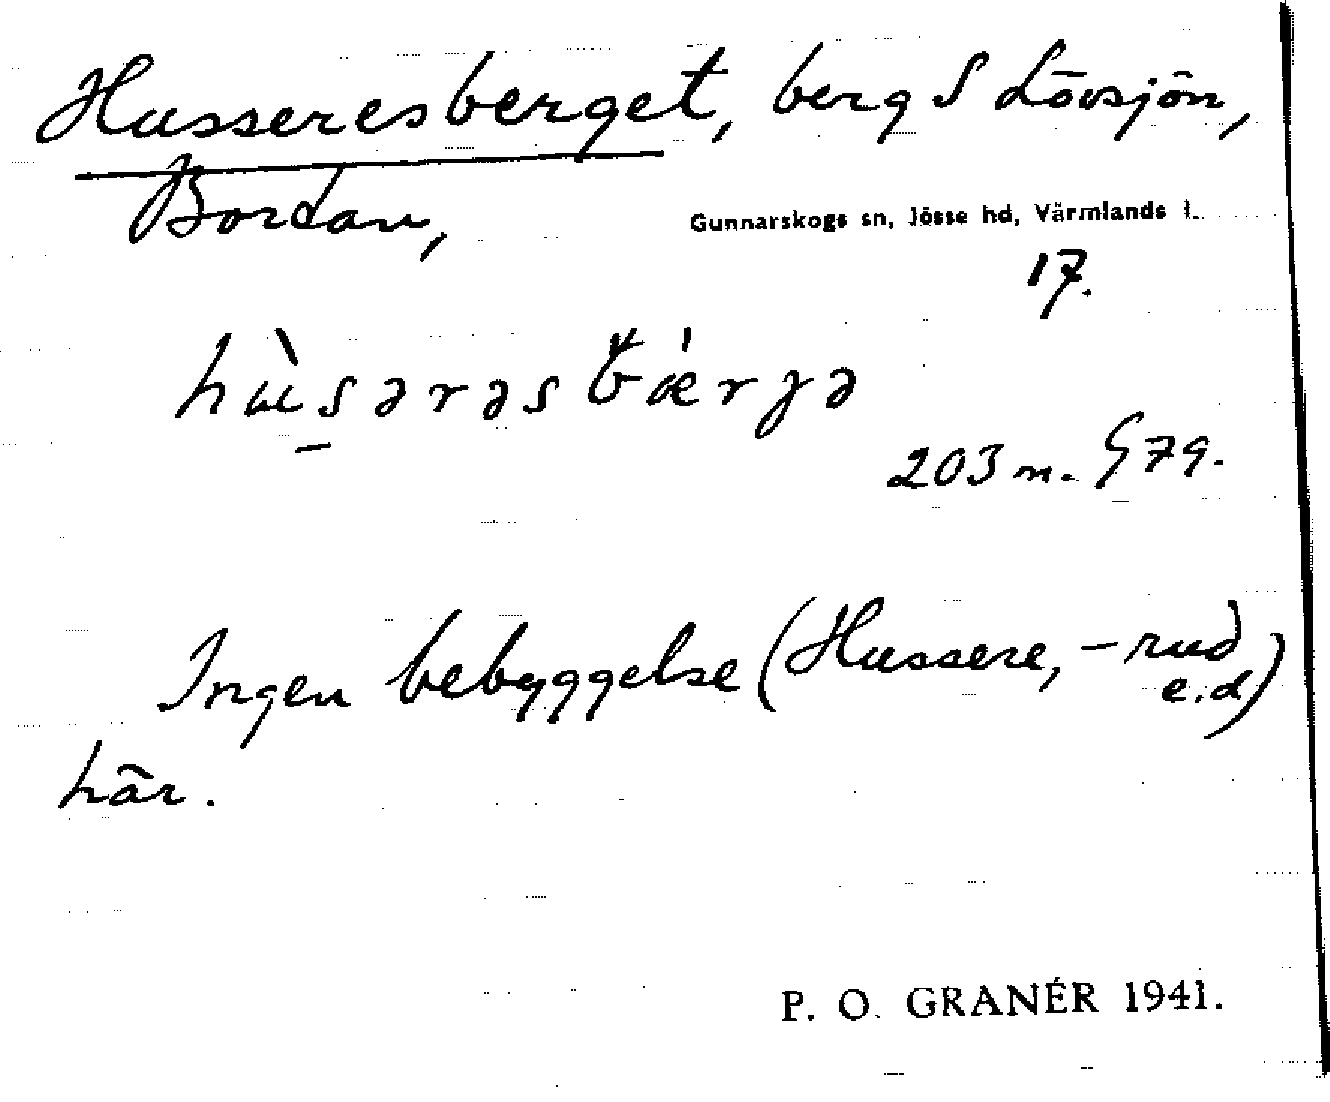 Husseresberget, berg S Lövsjön,
Bordan,
Gunnarskogs sn, Jösse hd, Värmlands l.
17.
203 m. G79.
Ingen bebyggelse (Hussere, -rud
e.d)
här.
P. O. GRANÉR 1941.